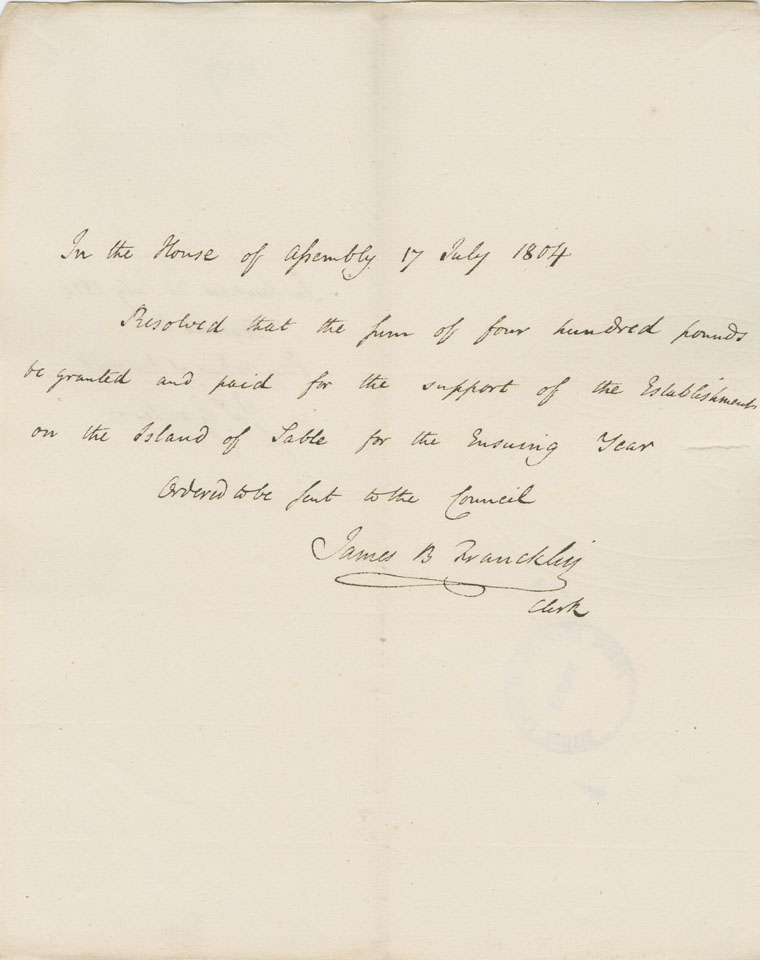 In the House of Assembly 17 July 1804
Resolved that the sum of four hundred pounds
be granted and paid for the support of the Establishment
on the Island of Sable for the Ensuing Year
Ordered to be sent to the Council
James B Francklin
Clerk